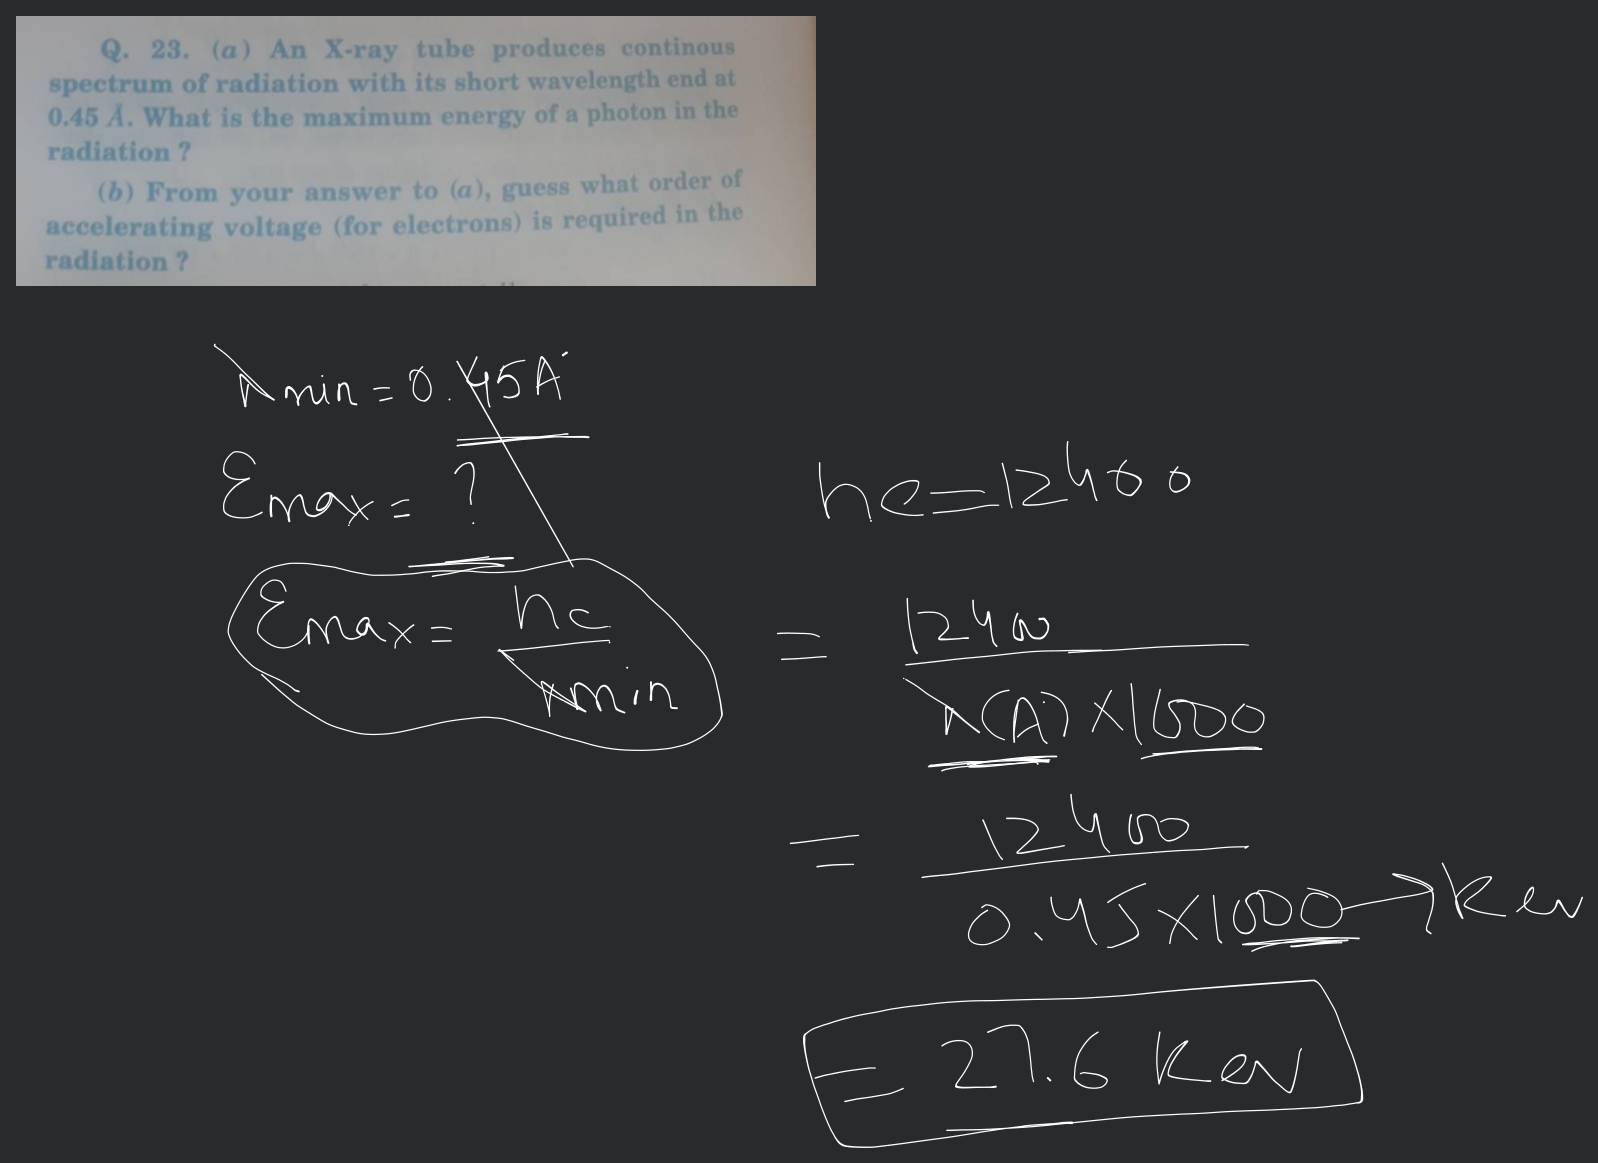 Q. 23. (a) An X-ray tube produces continous
spectrum of radiation with its short wavelength end at
0.45 Å. What is the maximum energy of a photon in the
radiation ?
(b) From your answer to (a), guess what order of
accelerating voltage (for electrons) is required in the
radiation ?
λmin = 0.45A°
Emax = ?
Emax = hc
λmin
hc = 12400
= 12400
λ(A°) × 1000
= 12400
0.45 × 1000 → Kev
= 27.6 Kev